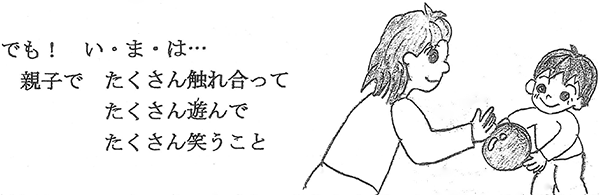 でも！　い・ま・は…
親子で　たくさん触れ合って
たくさん遊んで
たくさん笑うこと